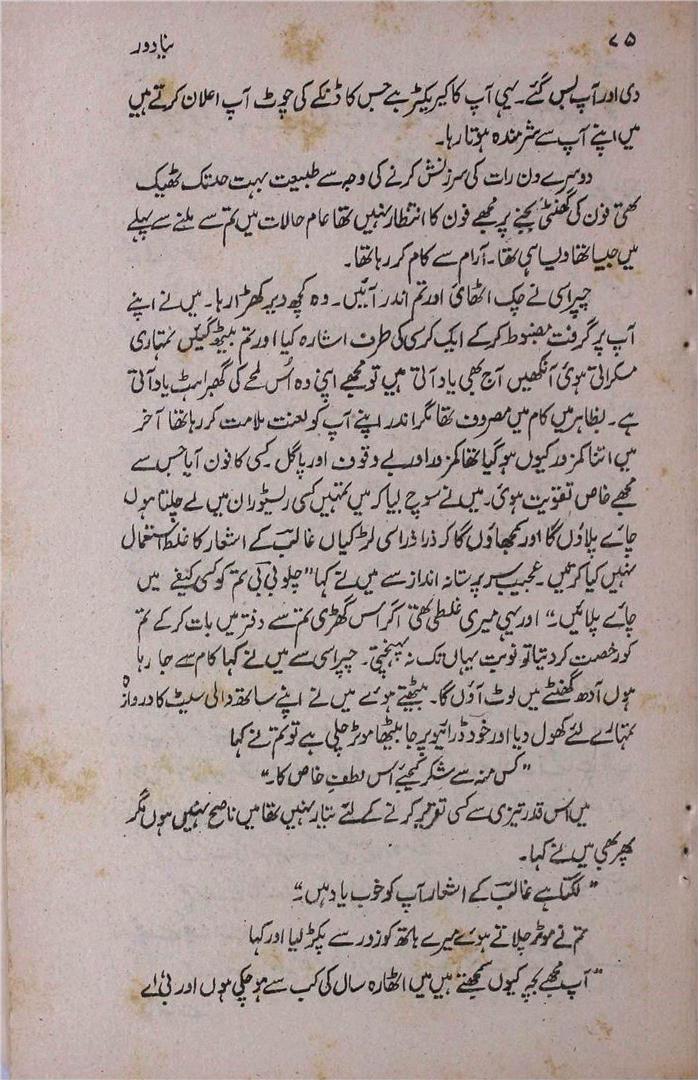 ۷۵
نیا دور
دی اور آپ بس گئے۔ یہی آپ کا کیریکٹر ہے جس کا ڈنکے کی چوٹ آپ اعلان کرتے ہیں
میں اپنے آپ سے شرمندہ ہوتا رہا۔
دوسرے دن رات کی سرزنش کرنے کی وجہ سے طبیعت بہت حد تک ٹھیک
تھی فون کی گھنٹی بجنے پر مجھے فون کا انتظار نہیں تھا عام حالات میں تم سے ملنے سے پہلے
میں جیسا تھا ویسا ہی تھا۔ آرام سے کام کر رہا تھا۔
چپراسی نے چک اٹھائی اور تم اندر آئیں۔ وہ کچھ دیر کھڑا رہا۔ میں نے اپنے
آپ پر گرفت مضبوط کر کے ایک کرسی کی طرف اشارہ کیا اور تم بیٹھ گئیں تمہاری
مسکراتی ہوئی آنکھیں آج بھی یاد آتی ہیں تو مجھے اپنی وہ اُس لمحے کی گھبراہٹ یاد آتی
ہے۔ بظاہر میں کام میں مصروف تھا مگر اندر اپنے آپ کو لعنت ملامت کر رہا تھا آخر
میں اتنا کمزور کیوں ہو گیا تھا کمزور اور بے وقوف اور پاگل۔ کسی کا فون آیا جس سے
مجھے خاص تقویت ہوئی۔ میں نے سوچ لیا کہ میں تمہیں کسی ریسٹوران میں لے چلتا ہوں
چائے پلاؤں گا اور سمجھاؤں گا کہ ذرا ذرا سی لڑکیاں غالبؔ کے اشعار کا غلط استعمال
نہیں کیا کرتیں۔ عجیب سرپرستانہ انداز سے میں نے کہا "چلو بی بی تم کو کسی کیفے میں
چائے پلائیں۔" اور یہی میری غلطی تھی اگر اس گھڑی تم سے دفتر میں بات کر کے تم
کو رخصت کر دیتا تو نوبت یہاں تک نہ پہنچتی۔ چپراسی سے میں نے کہا کام سے جا رہا
ہوں آدھ گھنٹے میں لوٹ آؤں گا۔ بیٹھتے ہوئے میں نے اپنے ساتھ والی سیٹ کا دروازہ
تمہارے لئے کھول دیا اور خود ڈرائیو پر جا بیٹھا موٹر چلی ہے تو تم نے کہا
"کس منہ سے شکر کیجئے اس لطفِ خاص کا۔"
میں اس قدر تیزی سے کسی تقریر کرنے کے لئے تیار نہیں تھا میں ناصح نہیں ہوں مگر
پھر بھی میں نے کہا۔
"لگتا ہے غالبؔ کے اشعار آپ کو خوب یاد ہیں۔"
تم نے موٹر چلاتے ہوئے میرے ہاتھ کو زور سے پکڑ لیا اور کہا
"آپ مجھے بچہ کیوں سمجھتے ہیں میں اٹھارہ سال کی کب سے ہو چکی ہوں اور بی اے